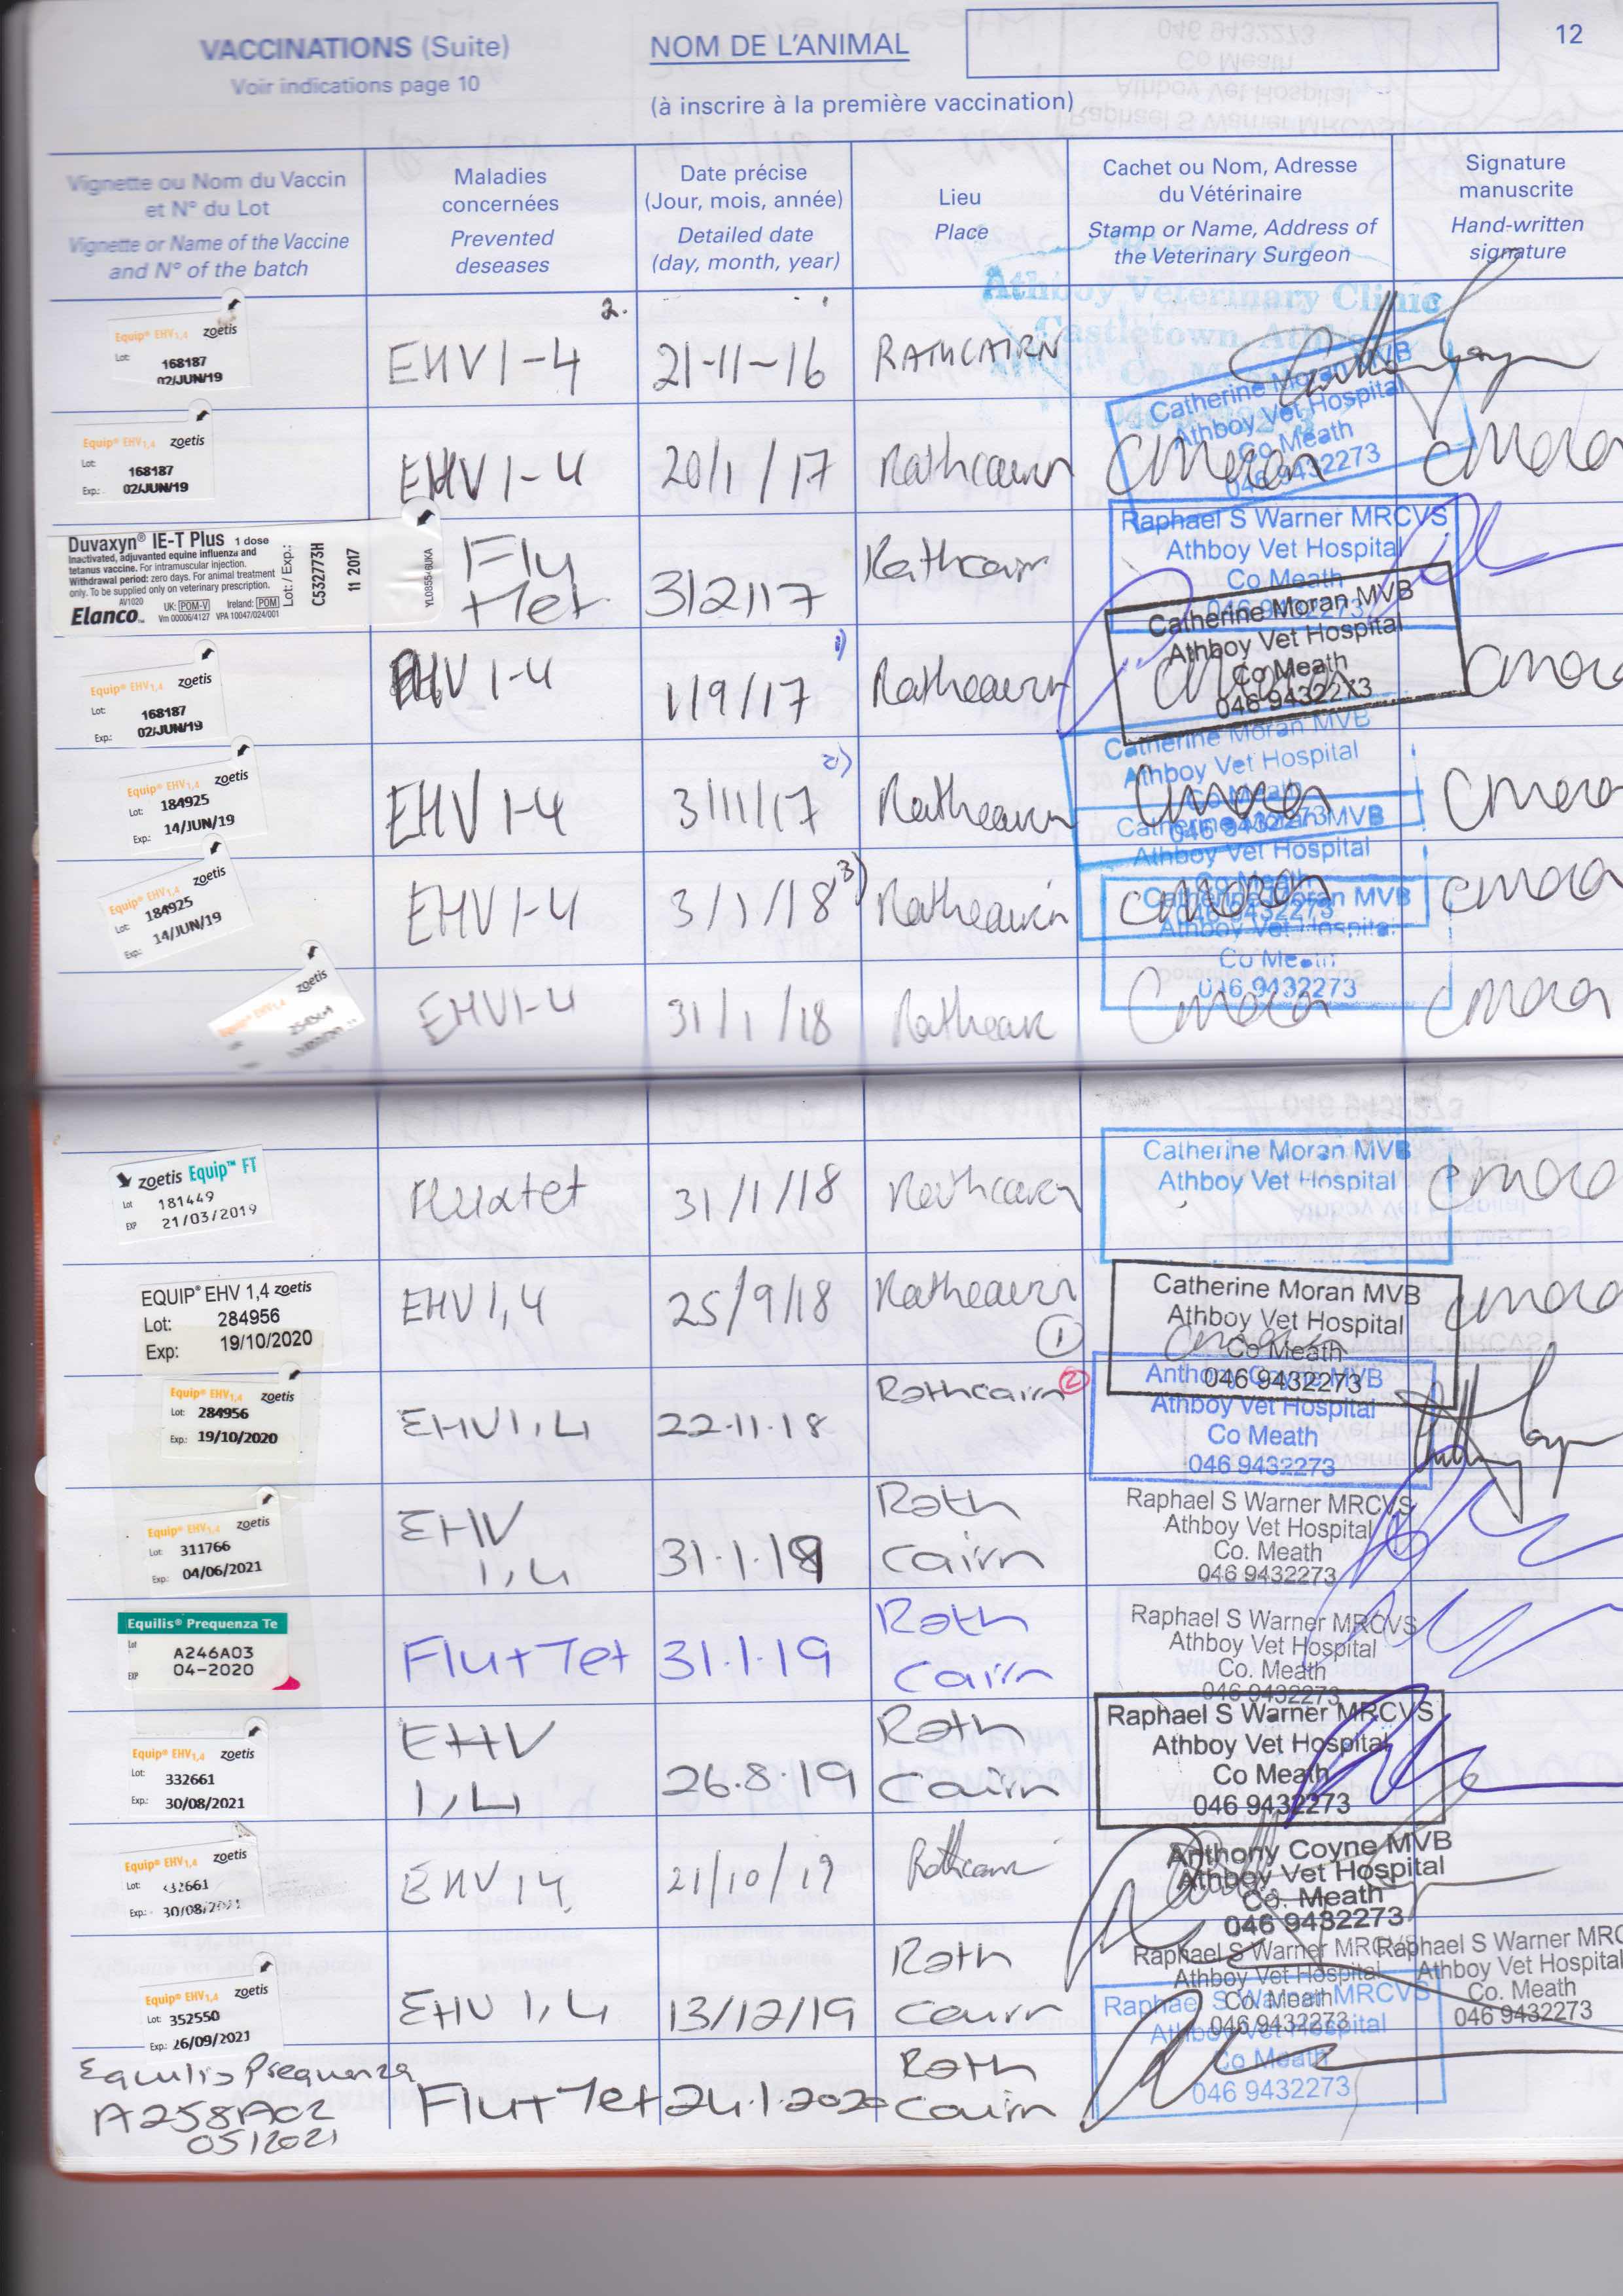 VACCINATIONS (Suite)
Voir indications page 10
NOM DE L'ANIMAL
(à inscrire à la première vaccination)
12
Vignette ou Nom du Vaccin
et N° du Lot
Vignette or Name of the Vaccine
and N° of the batch
Maladies
concernées
Prevented
deseases
Date précise
(Jour, mois, année)
Detailed date
(day, month, year)
Lieu
Place
Cachet ou Nom, Adresse
du Vétérinaire
Stamp or Name, Address of
the Veterinary Surgeon
Signature
manuscrite
Hand-written
signature
Athboy Veterinary Clinic
Castletown, Athboy
Equip® EHV1,4 zoetis
Lot: 168187
02/JUN/19
EHV 1-4
2.
21-11-16
RATHCAIRN
Catherine Moran MVB
Athboy Vet Hospital
Co Meath
046 9432273
Equip® EHV1,4 zoetis
Lot: 168187
Exp.: 02/JUN/19
EHV 1-4
20/1/17
Rathcairn
CMoran
Duvaxyn® IE-T Plus 1 dose
Inactivated, adjuvanted equine influenza and
tetanus vaccine. For intramuscular injection.
Withdrawal period: zero days. For animal treatment
only. To be supplied only on veterinary prescription.
AV1020 UK: POM-V Ireland: POM
Elanco Vm 00006/4127 VPA 10047/024/001
Lot / Exp.:
C532773H
11 2017
YL085546UKA
Flu
+Tet
3/2/17
Rathcairn
Raphael S Warner MRCVS
Athboy Vet Hospital
Co Meath
046 9432273
Equip® EHV1,4 zoetis
Lot: 168187
Exp.: 02/JUN/19
EHV 1-4
1/9/17
1)
Rathcairn
Catherine Moran MVB
Athboy Vet Hospital
Co Meath
046 9432273
Equip® EHV1,4 zoetis
Lot: 184925
Exp.: 14/JUN/19
EHV 1-4
3/11/17
2)
Rathcairn
Catherine Moran MVB
Athboy Vet Hospital
Co Meath
046 9432273
CMoran
Equip® EHV1,4 zoetis
Lot: 184925
Exp.: 14/JUN/19
EHV 1-4
3/1/18
3)
Rathcairn
Catherine Moran MVB
Athboy Vet Hospital
Co Meath
046 9432273
CMoran
Equip® EHV1,4 zoetis
EHV 1-4
31/1/18
Catherine Moran MVB
Athboy Vet Hospital
Co Meath
046 9432273
CMoran
zoetis Equip™ FT
Lot 181449
EXP 21/03/2019
31/1/18
Rathcairn
Catherine Moran MVB
Athboy Vet Hospital
EQUIP® EHV 1,4 zoetis
Lot: 284956
Exp: 19/10/2020
EHV 1,4
25/9/18
Rathcairn
1
Catherine Moran MVB
Athboy Vet Hospital
Co Meath
046 9432273
Equip® EHV1,4 zoetis
Lot: 284956
Exp.: 19/10/2020
EHV 1,4
22-11-18
Rathcairn
2
Anthony Coyne MVB
Athboy Vet Hospital
Co Meath
046 9432273
Equip® EHV1,4 zoetis
Lot: 311766
Exp.: 04/06/2021
EHV
1,4
31.1.19
Rath
Cairn
Raphael S Warner MRCVS
Athboy Vet Hospital
Co. Meath
046 9432273
Equilis® Prequenza Te
Lot A246A03
EXP 04-2020
Flu + Tet
31.1.19
Rath
Cairn
Raphael S Warner MRCVS
Athboy Vet Hospital
Co. Meath
046 9432273
Equip® EHV1,4 zoetis
Lot: 332661
Exp.: 30/08/2021
EHV
1,4
26.8.19
Rath
Cairn
Raphael S Warner MRCVS
Athboy Vet Hospital
Co Meath
046 9432273
Equip® EHV1,4 zoetis
Lot: 332661
Exp.: 30/08/2021
EHV 1,4
21/10/19
Rathcairn
Anthony Coyne MVB
Athboy Vet Hospital
Co. Meath
046 9432273
Equip® EHV1,4 zoetis
Lot: 352550
Exp.: 26/09/2021
EHV 1,4
13/12/19
Rath
Cairn
Raphael S Warner MRCVS
Athboy Vet Hospital
Co. Meath
046 9432273
Raphael S Warner MRC
Athboy Vet Hospital
Co. Meath
046 9432273
Equilis Prequenza
A258A02
05/2021
Flu + Tet
24.1.2020
Rath
Cairn
Raphael S Warner MRCVS
Athboy Vet Hospital
Co Meath
046 9432273